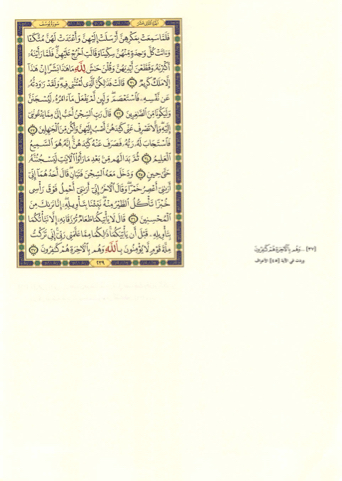 سورة يوسف
فَلَمَّا سَمِعَتْ بِمَكْرِهِنَّ أَرْسَلَتْ إِلَيْهِنَّ وَأَعْتَدَتْ لَهُنَّ مُتَّكَـًٔا
وَءَاتَتْ كُلَّ وَٰحِدَةٍ مِّنْهُنَّ سِكِّينًا وَقَالَتِ ٱخْرُجْ عَلَيْهِنَّ فَلَمَّا رَأَيْنَهُۥٓ
أَكْبَرْنَهُۥ وَقَطَّعْنَ أَيْدِيَهُنَّ وَقُلْنَ حَٰشَ لِلَّهِ مَا هَٰذَا بَشَرًا إِنْ هَٰذَآ
إِلَّا مَلَكٌ كَرِيمٌ ٣١ قَالَتْ فَذَٰلِكُنَّ ٱلَّذِى لُمْتُنَّنِى فِيهِ وَلَقَدْ رَٰوَدتُّهُۥ
عَن نَّفْسِهِۦ فَٱسْتَعْصَمَ وَلَئِن لَّمْ يَفْعَلْ مَآ ءَامُرُهُۥ لَيُسْجَنَنَّ
وَلَيَكُونًا مِّنَ ٱلصَّٰغِرِينَ ٣٢ قَالَ رَبِّ ٱلسِّجْنُ أَحَبُّ إِلَىَّ مِمَّا يَدْعُونَنِىٓ
إِلَيْهِ وَإِلَّا تَصْرِفْ عَنِّى كَيْدَهُنَّ أَصْبُ إِلَيْهِنَّ وَأَكُن مِّنَ ٱلْجَٰهِلِينَ ٣٣
فَٱسْتَجَابَ لَهُۥ رَبُّهُۥ فَصَرَفَ عَنْهُ كَيْدَهُنَّ إِنَّهُۥ هُوَ ٱلسَّمِيعُ
ٱلْعَلِيمُ ٣٤ ثُمَّ بَدَا لَهُم مِّنۢ بَعْدِ مَا رَأَوُا۟ ٱلْـَٔايَٰتِ لَيَسْجُنُنَّهُۥ
حَتَّىٰ حِينٍ ٣٥ وَدَخَلَ مَعَهُ ٱلسِّجْنَ فَتَيَانِ قَالَ أَحَدُهُمَآ إِنِّىٓ
أَرَىٰنِىٓ أَعْصِرُ خَمْرًا وَقَالَ ٱلْـَٔاخَرُ إِنِّىٓ أَرَىٰنِىٓ أَحْمِلُ فَوْقَ رَأْسِى
خُبْزًا تَأْكُلُ ٱلطَّيْرُ مِنْهُ نَبِّئْنَا بِتَأْوِيلِهِۦٓ إِنَّا نَرَىٰكَ مِنَ
ٱلْمُحْسِنِينَ ٣٦ قَالَ لَا يَأْتِيكُمَا طَعَامٌ تُرْزَقَانِهِۦٓ إِلَّا نَبَّأْتُكُمَا
بِتَأْوِيلِهِۦ قَبْلَ أَن يَأْتِيَكُمَا ذَٰلِكُمَا مِمَّا عَلَّمَنِى رَبِّىٓ إِنِّى تَرَكْتُ
مِلَّةَ قَوْمٍ لَّا يُؤْمِنُونَ بِٱللَّهِ وَهُم بِٱلْـَٔاخِرَةِ هُمْ كَٰفِرُونَ ٣٧
٢٣٩
[٣٧] .. وَهُم بِٱلْـَٔاخِرَةِ هُمْ كَٰفِرُونَ
وردت في الآية [٤٥] الأعراف